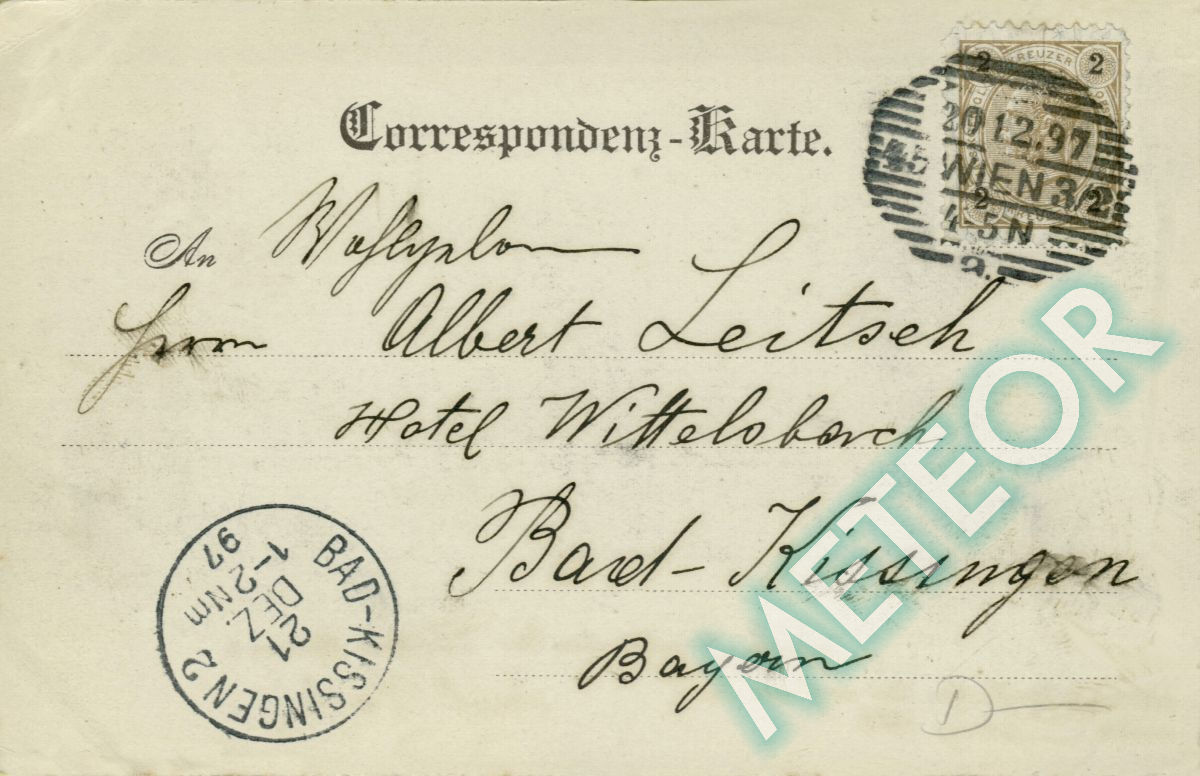 Correspondenz-Karte.
2 KREUZER 2
20 12.97
WIEN 3/2
4-5N
a.
2 2
An Wohlgeboren
Herrn Albert Leitsch
Hotel Wittelsbach
Bad-Kissingen
Bayern
BAD-KISSINGEN 2
21
DEZ.
1-2Nm
97
METEOR
D